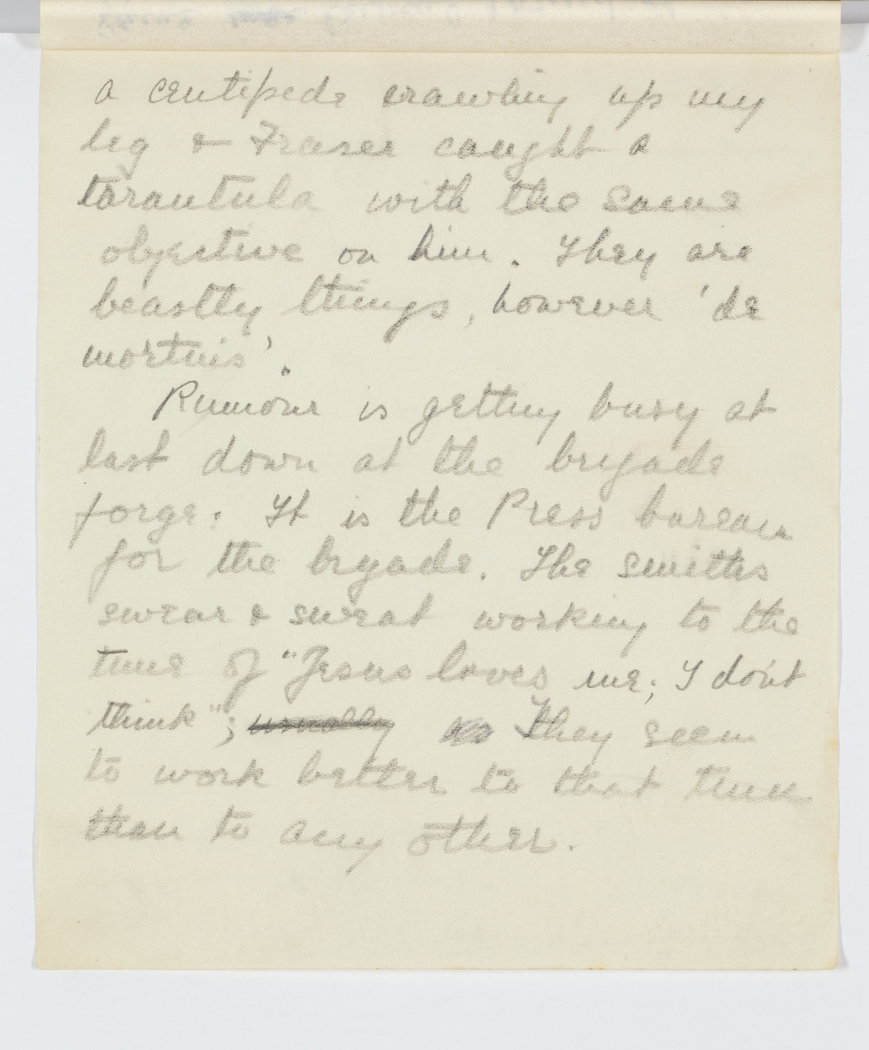 a centipede crawling up my
leg & Fraser caught a
tarantula with the same
objective on him. They are
beastly things, however 'de
mortuis'.
Rumour is getting busy at
last down at the brigade
forge: It is the Press bureau
for the brigade. The smiths
swear & sweat working to the
tune of "Jesus loves me; I don't
think"; usually They seem
to work better to that tune
than to any other.